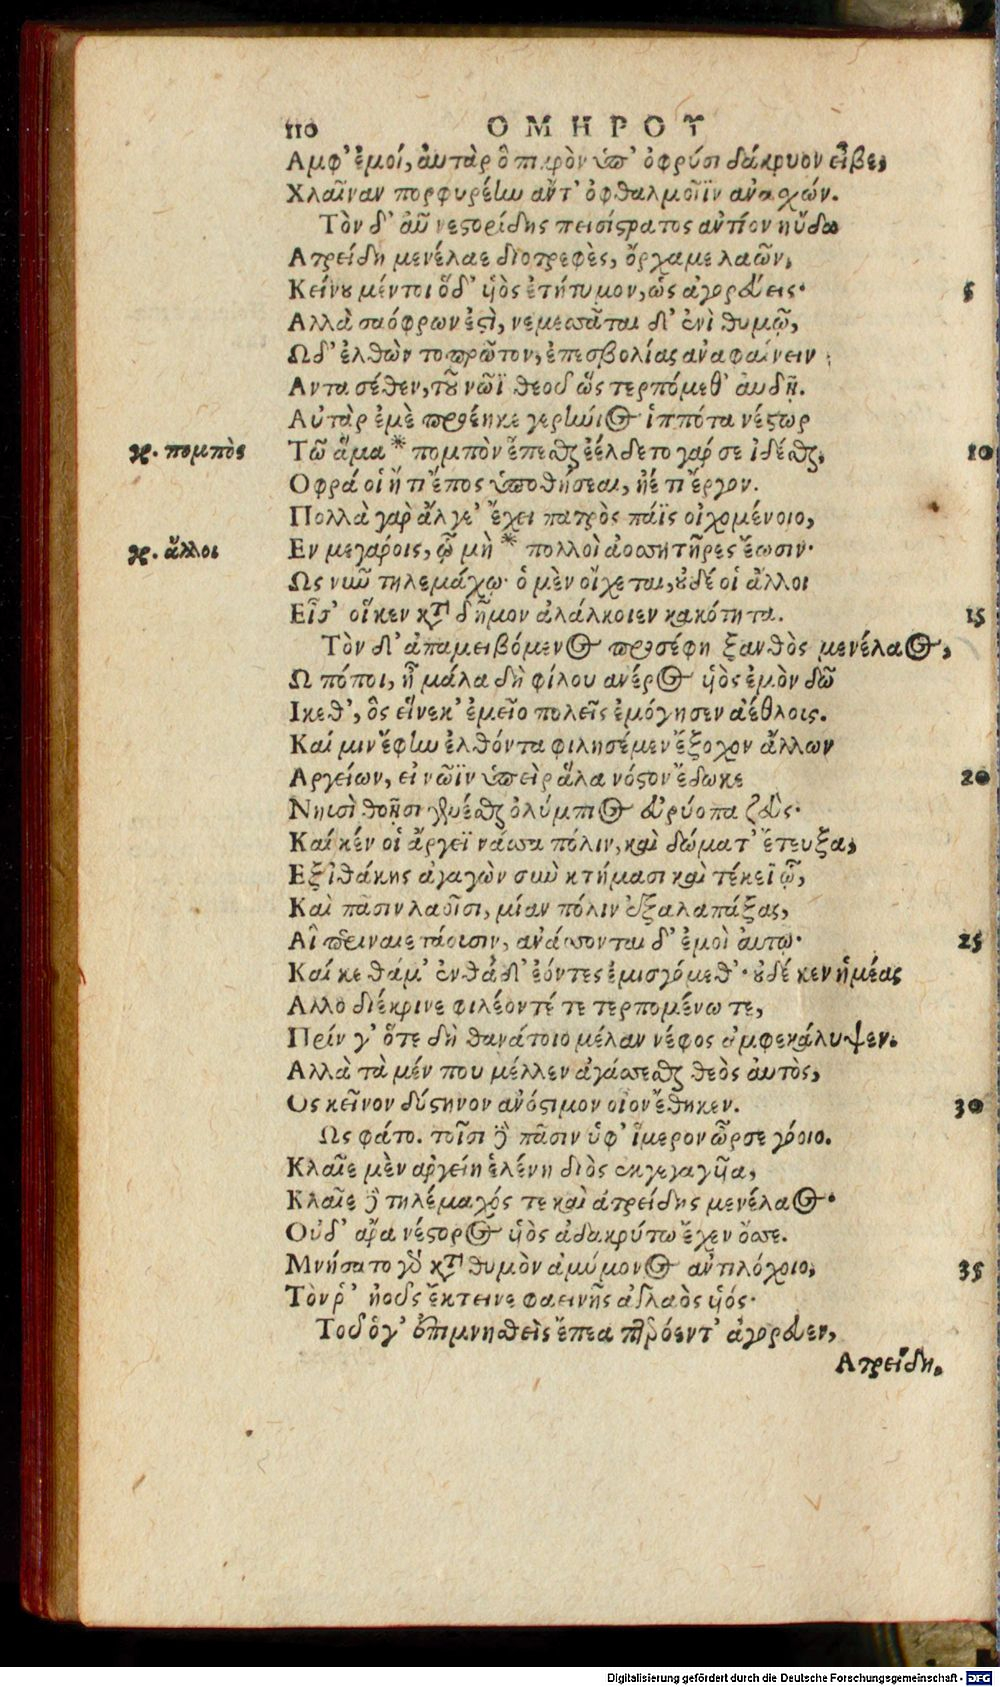 110 ΟΜΗΡΟΥ
Αμφ' ἐμοί, ἀυτὰρ ὁ πικρὸν ὑπ' ὀφρύσι δάκρυον εἶβε,
Χλαῖναν πορφυρέην ἄντ' ὀφθαλμοῖϊν ἀνασχών.
Τὸν δ' ἀῦ νεστορίδης πεισίστρατος ἀντίον ηὔδα
Ατρείδη μενέλαε διοτρεφὲς, ὄρχαμε λαῶν,
Κείνου μέντοι ὅδ' υἱὸς ἐτήτυμον, ὡς ἀγορεύεις· 5
Αλλὰ σαόφρων ἐστὶ, νεμεσσᾶται δ' ἐνὶ θυμῷ,
Ωδ' ἐλθὼν τοπρῶτον, ἐπεσβολίας ἀναφαίνειν
Αντα σέθεν, τοῦ νῶϊ θεοῦ ὣς τερπόμεθ' ἀυδῇ.
Αὐτὰρ ἐμὲ προέηκε γερήνιος ἱππότα νέστωρ
γρ. πομπὸς Τῶ ἅμα * πομπὸν ἕπεσθαι ἐέλδετο γάρ σε ἰδέσθαι, 10
Οφρά οἱ ἤ τι ἔπος ὑποθήσεαι, ἠέ τι ἔργον.
Πολλὰ γὰρ ἄλγε' ἔχει πατρὸς πάϊς οἰχομένοιο,
γρ. ἄλλοι Εν μεγάροις, ᾧ μὴ * πολλοὶ ἀοσσητῆρες ἔωσιν·
Ως νῦν τηλεμάχῳ· ὁ μὲν οἴχεται, οὐδέ οἱ ἄλλοι
Εἶσ' οἵ κεν κατὰ δῆμον ἀλάλκοιεν κακότητα. 15
Τὸν δ' ἀπαμειβόμενος προσέφη ξανθὸς μενέλαος,
Ω πόποι, ἦ μάλα δὴ φίλου ἀνέρος υἱὸς ἐμὸν δῶ
Ικεθ', ὃς εἵνεκ' ἐμεῖο πολεῖς ἐμόγησεν ἀέθλοις.
Καί μιν ἔφην ἐλθόντα φιλησέμεν ἔξοχον ἄλλων
Αργείων, εἰ νῶϊν ὑπεὶρ ἅλα νόστον ἔδωκε 20
Νηυσὶ θοῇσι γενέσθαι ὀλύμπιος εὐρύοπα ζεύς·
Καί κέν οἱ ἄργεϊ νάσσα πόλιν, καὶ δώματ' ἔτευξα,
Εξ ἰθάκης ἀγαγὼν σὺν κτήμασι καὶ τέκεϊ ᾧ,
Καὶ πᾶσιν λαοῖσι, μίαν πόλιν ἐξαλαπάξας,
Αἳ περιναιετάουσιν, ἀνάσσονται δ' ἐμοὶ ἀυτῳ· 25
Καί κε θάμ' ἐνθάδ' ἐόντες ἐμισγόμεθ'· οὐδέ κεν ἡμέας
Αλλο διέκρινε φιλέοντέ τε τερπομένω τε,
Πρίν γ' ὅτε δὴ θανάτοιο μέλαν νέφος ἀμφεκάλυψεν.
Αλλὰ τὰ μέν που μέλλεν ἀγάσσεσθαι θεὸς ἀυτὸς,
Ος κεῖνον δύστηνον ἀνόστιμον οἶον ἔθηκεν. 30
Ως φάτο. τοῖσι δὲ πᾶσιν ὑφ' ἵμερον ὦρσε γόοιο.
Κλαῖε μὲν ἀργείη ἑλένη διὸς ἐκγεγαυῖα,
Κλαῖε δὲ τηλέμαχός τε καὶ ἀτρείδης μενέλαος·
Οὐδ' ἄρα νέστορος υἱὸς ἀδακρύτω ἔχεν ὄσσε.
Μνήσατο γὰρ κατὰ θυμὸν ἀμύμονος ἀντιλόχοιο, 35
Τόν ῥ' ἠοῦς ἔκτεινε φαεινῆς ἀγλαὸς υἱός·
Τοῦ ὅγ' ἐπιμνησθεὶς ἔπεα πτερόεντ' ἀγόρευεν,
Ατρείδη.
Digitalisierung gefördert durch die Deutsche Forschungsgemeinschaft - DFG